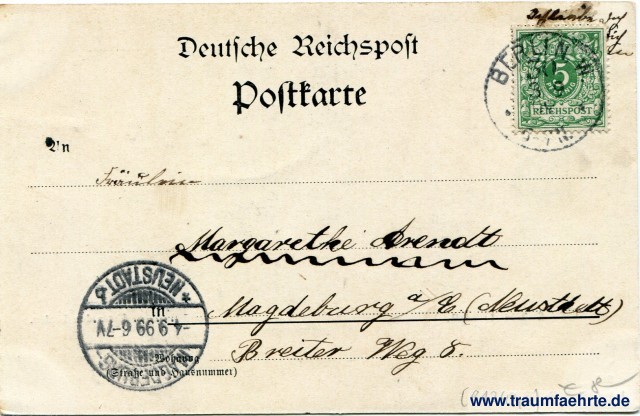 Deutsche Reichspost
Postkarte
BERLIN W
5
REICHSPOST
An
Fräulein
Margarethe Arendt
in Magdeburg a/E (Neustadt)
Breiter Weg 8.
Wohnung
(Straße und Hausnummer)
MAGDEBURG-
NEUSTADT b
-4.9.99.6-7V.
www.traumfaehrte.de